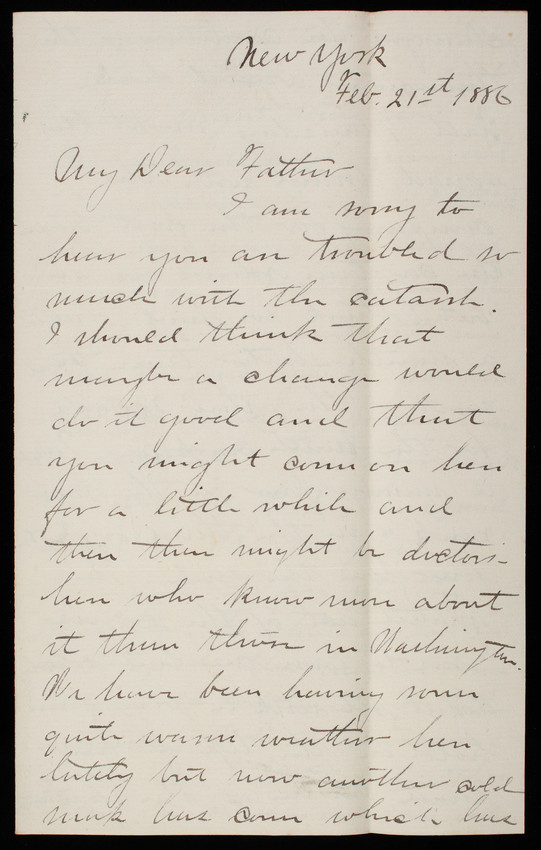 New York
Feb. 21st 1886
My Dear Father
I am sorry to
hear you are troubled so
much with the catarrh.
I should think that
maybe a change would
do it good and that
you might come on here
for a little while and
then there might be doctors
here who know more about
it than those in Washington.
We have been having some
quite warm weather here
lately but now another cold
snap has come which has